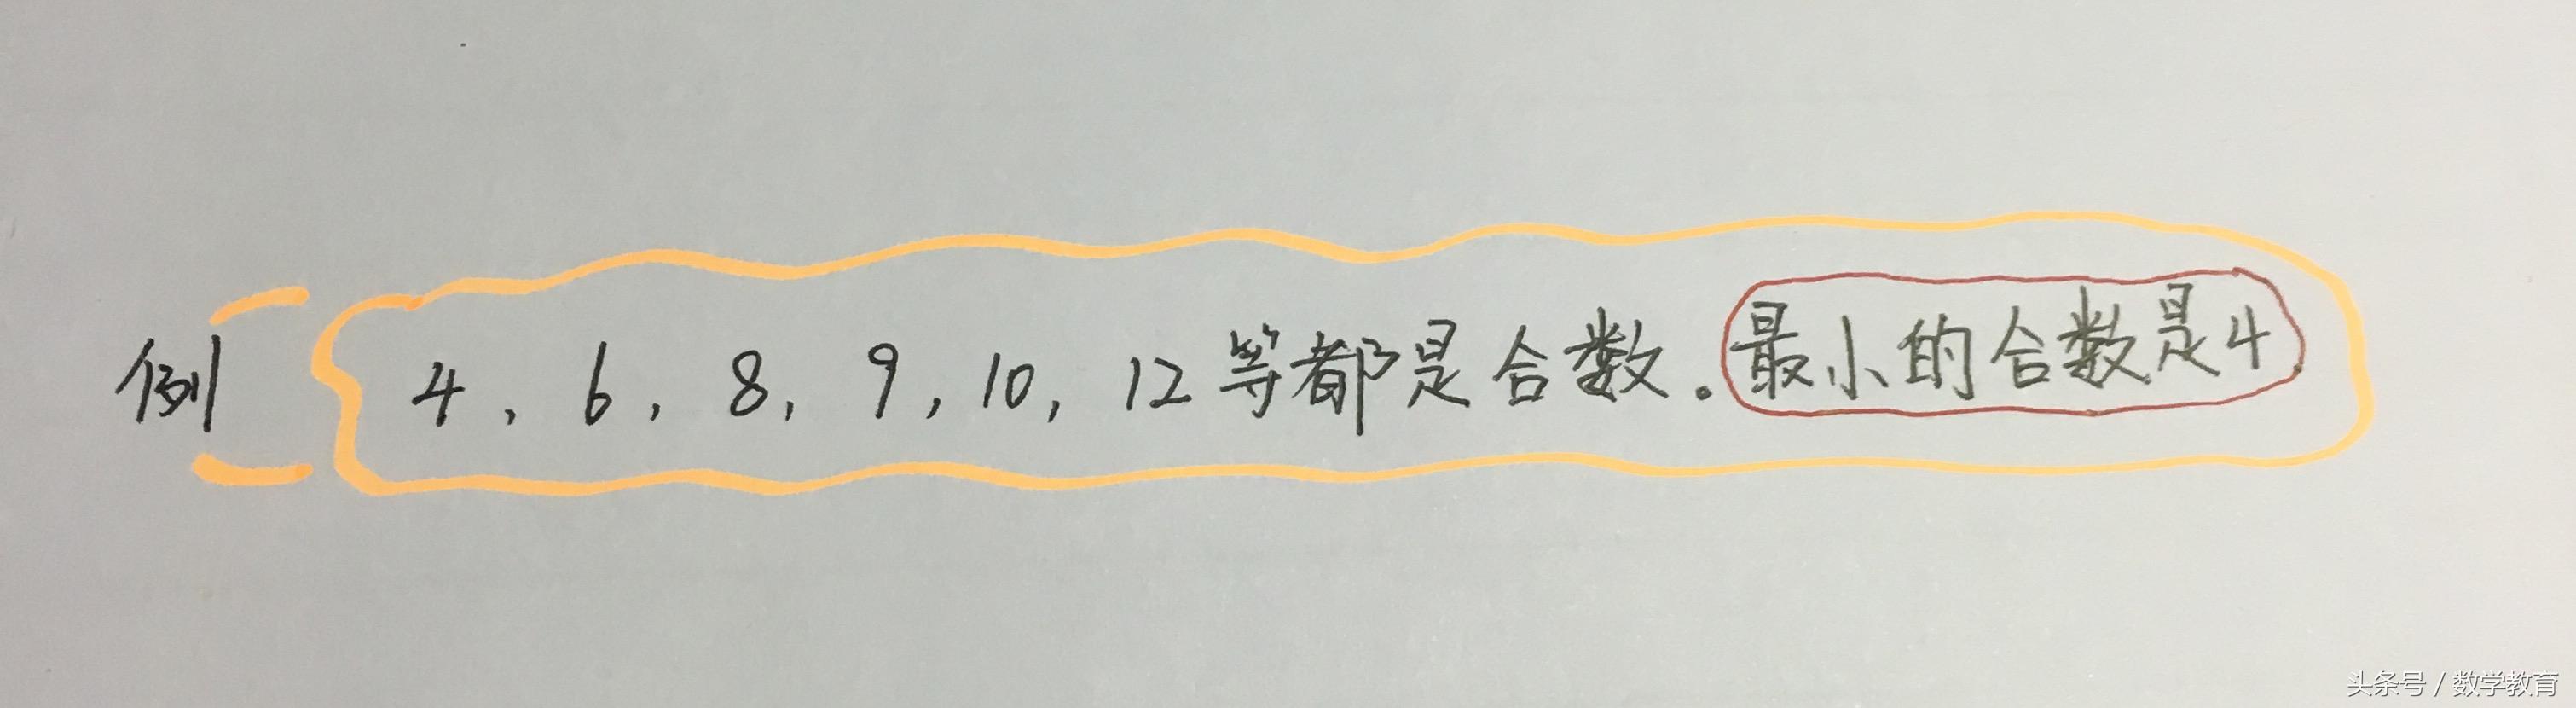 例 4，6，8，9，10，12等都是合数。最小的合数是4
头条号 / 数学教育